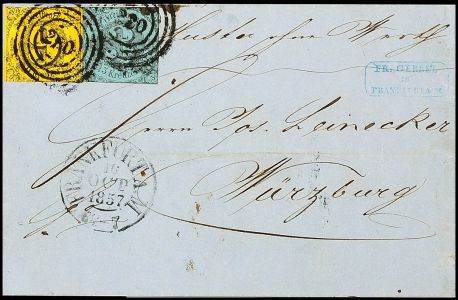 220
220
3 Kreuzer
Muster ohne Werth
FR. GERKEL
IN
FRANKFURT A/M
Herrn Jos. Leinecker
Würzburg
FRANKFURT A. M.
16
OCT
1857